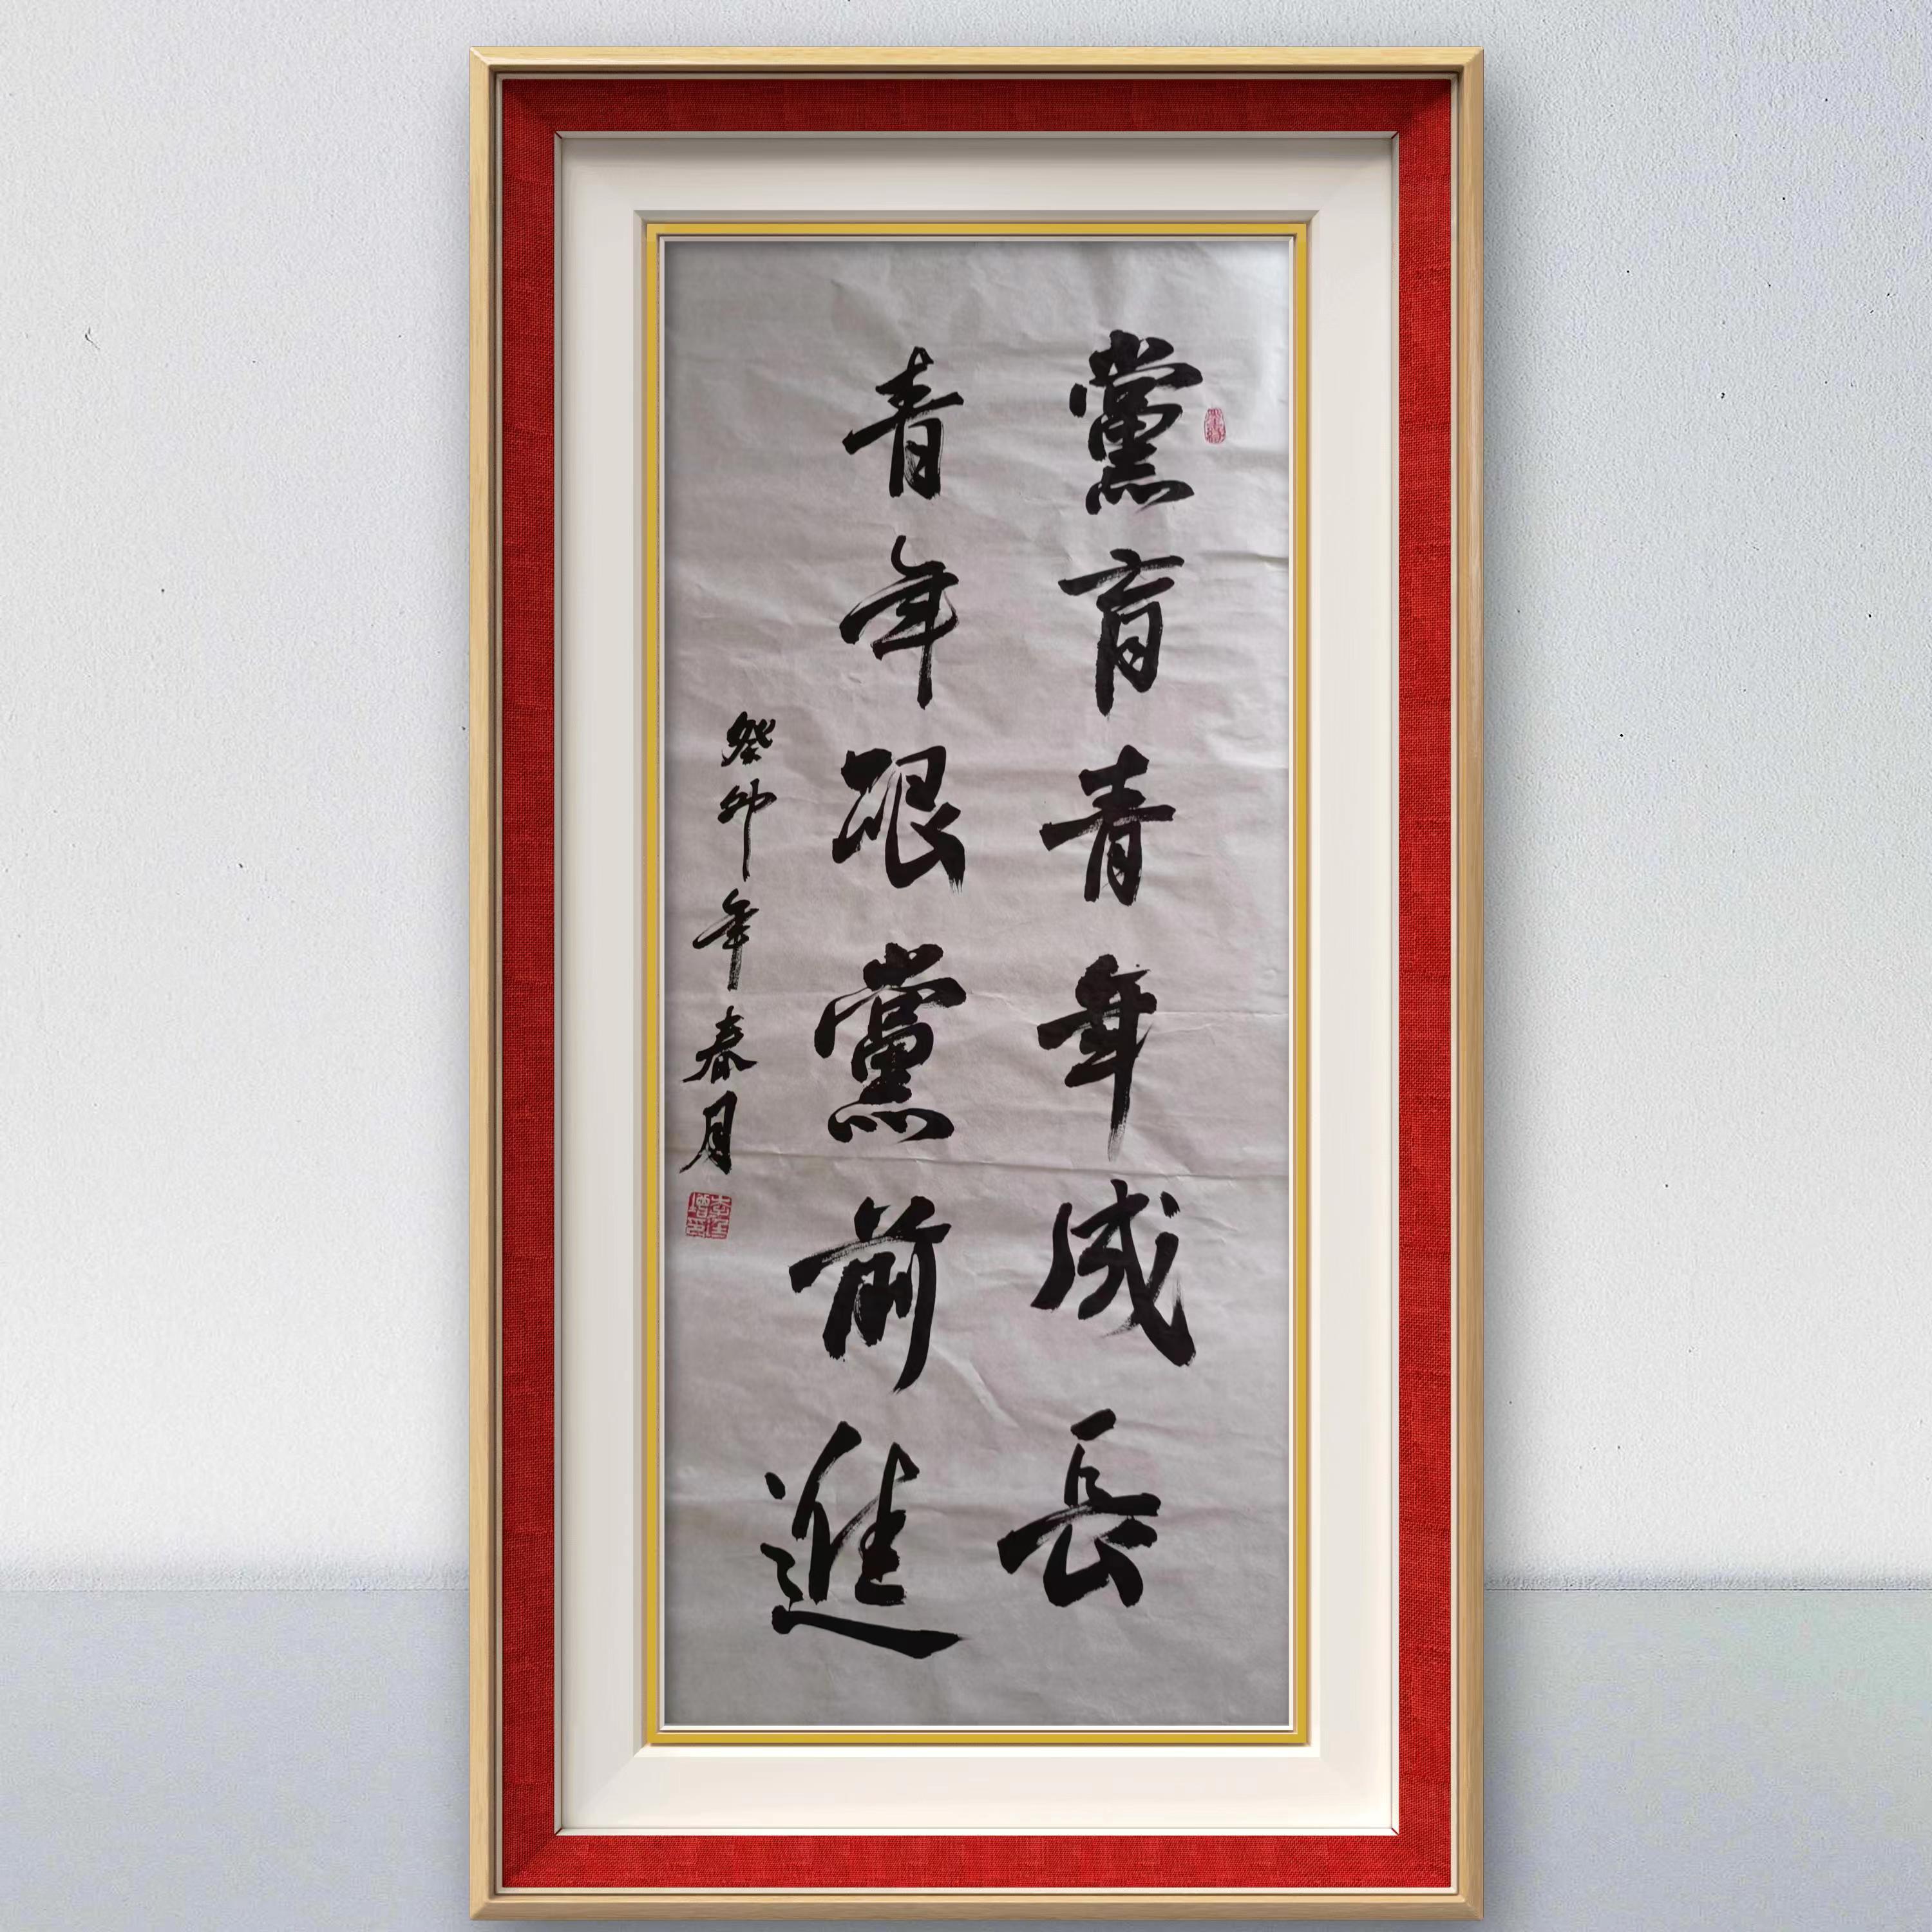 黨育青年成長
青年跟黨前進
癸卯年春月